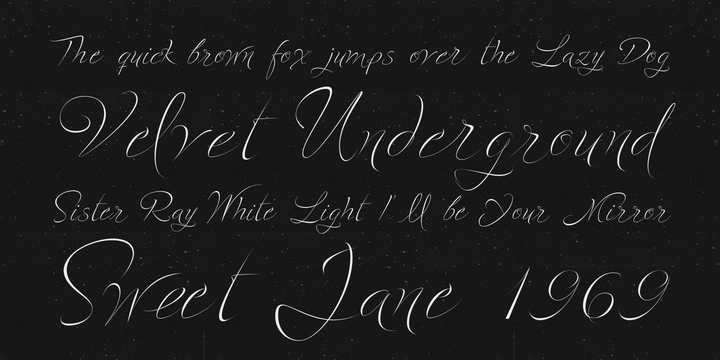 The quick brown fox jumps over the Lazy Dog
Velvet Underground
Sister Ray White Light I'll be Your Mirror
Sweet Jane 1969